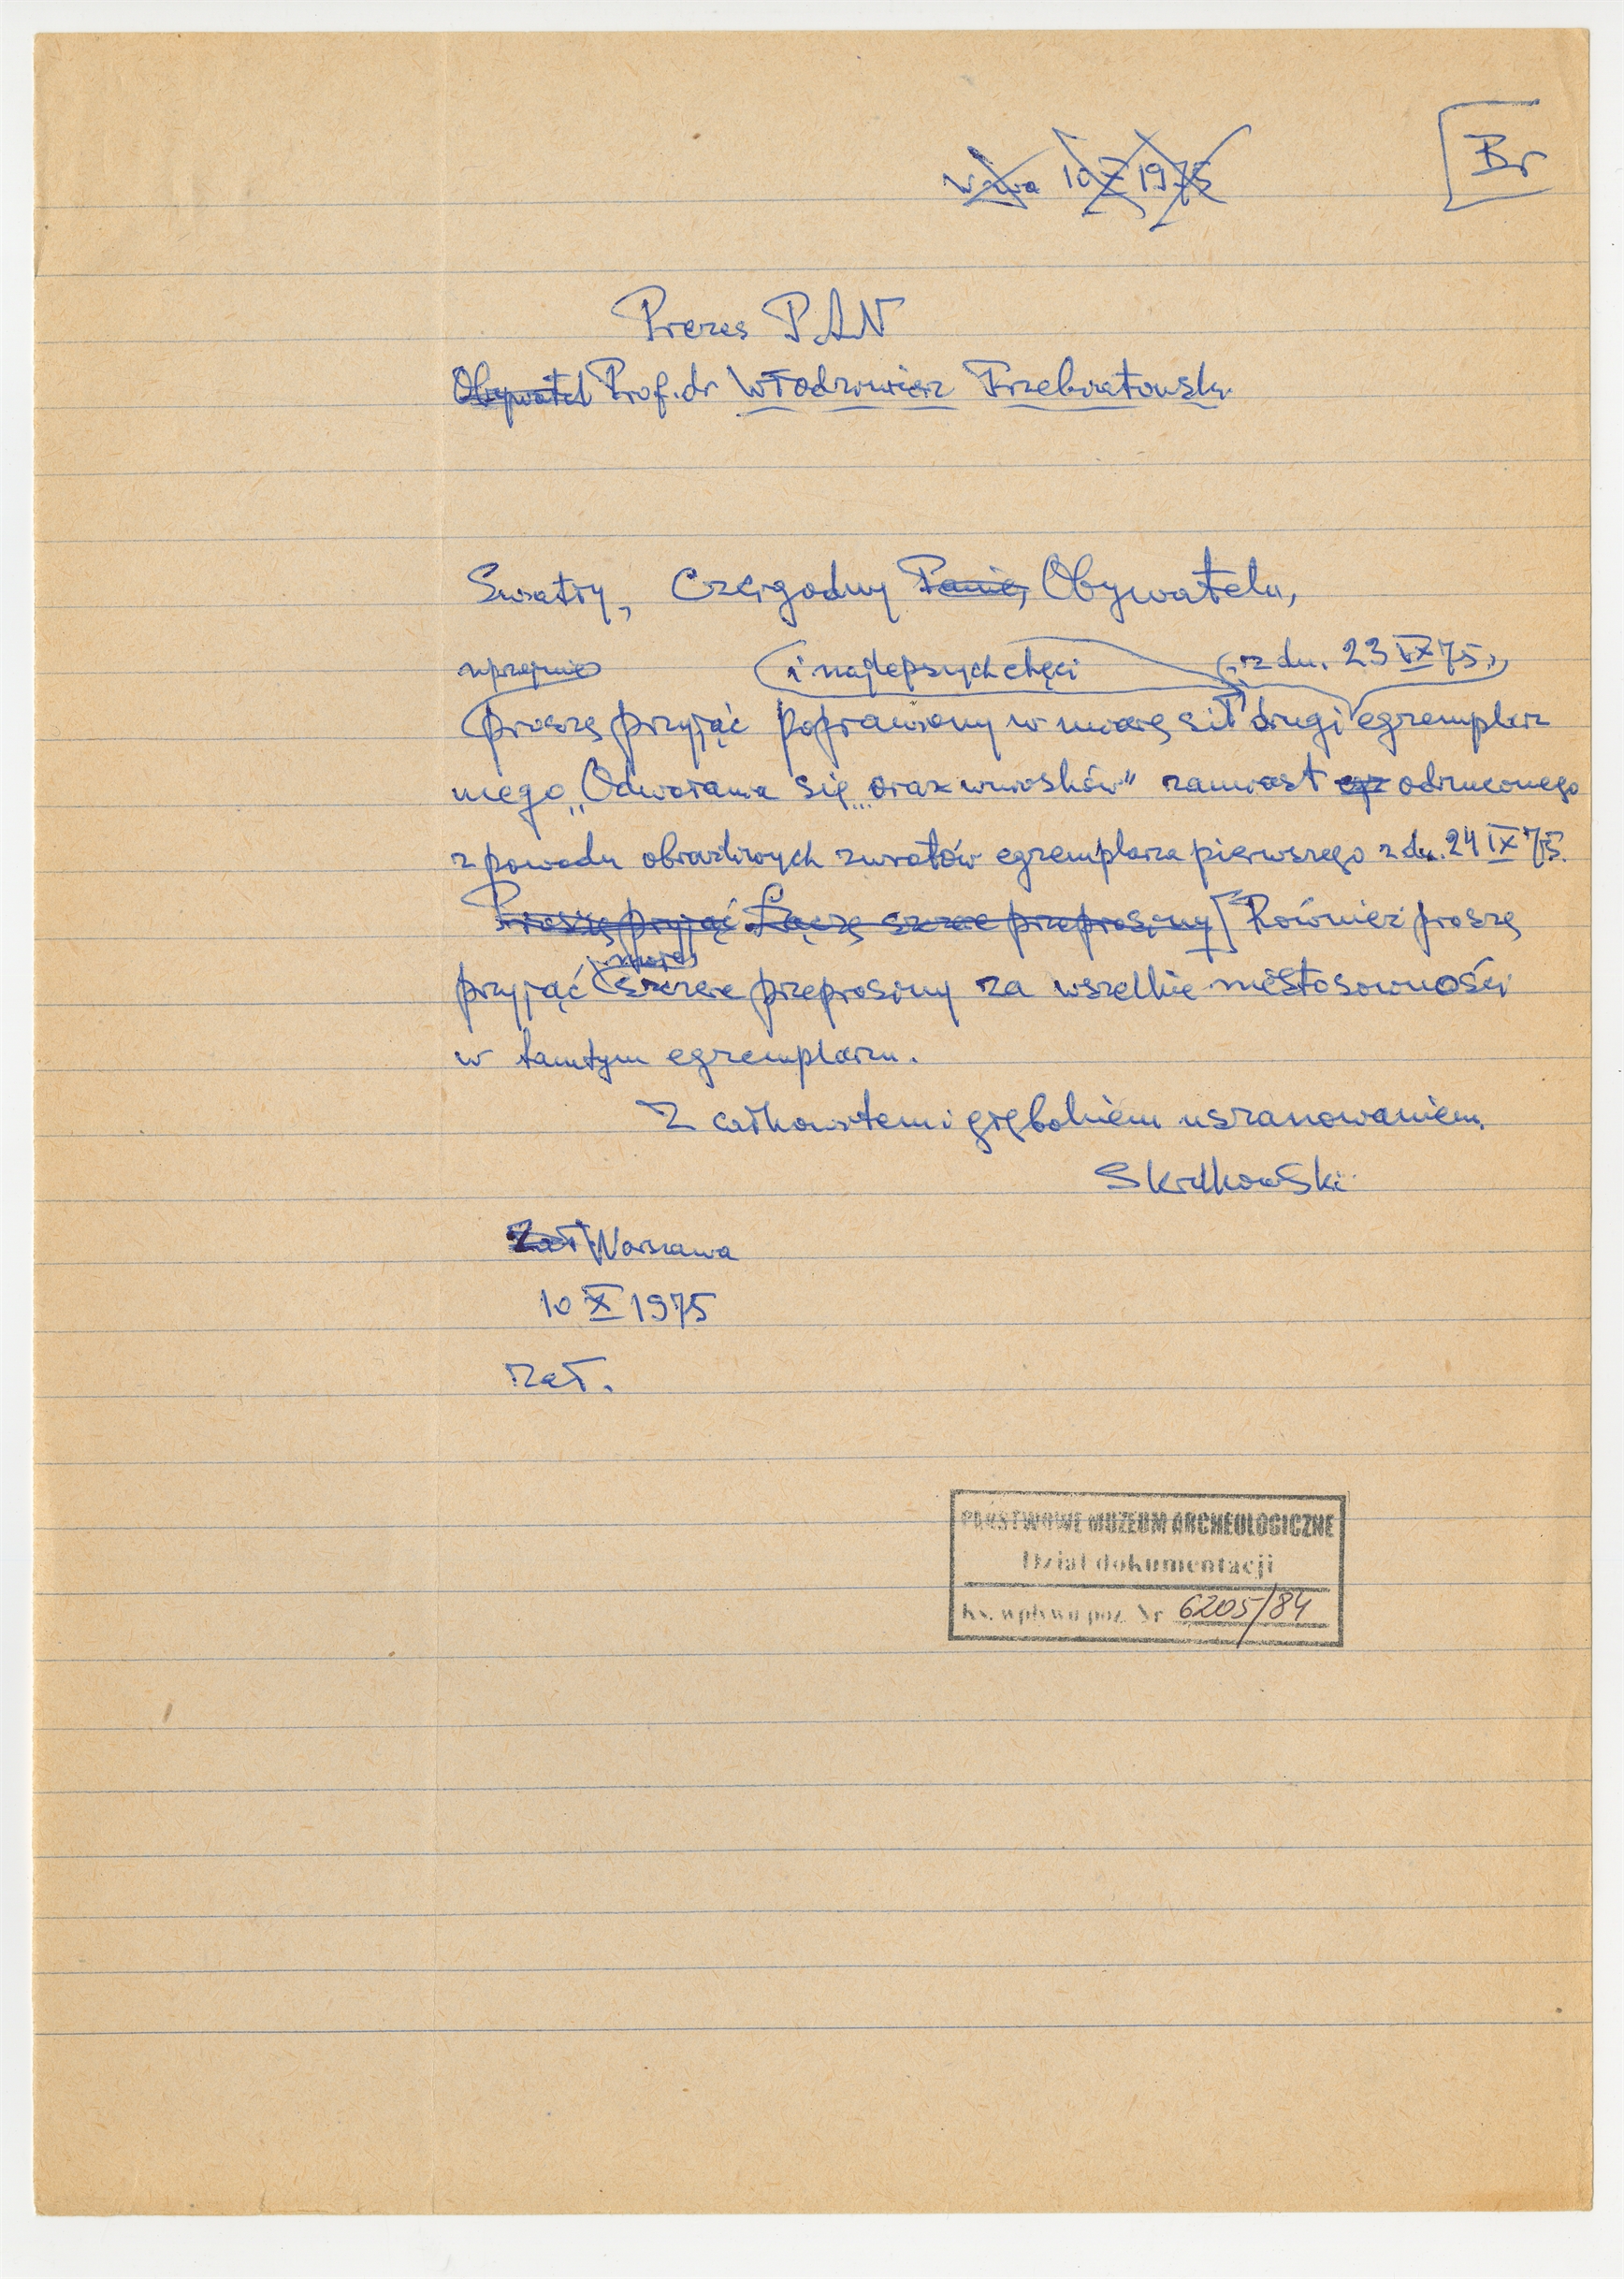 W-wa 10 X 1975
Br
Prezes PAN
Obywatel Prof. dr Włodzimierz Trzebiatowski
Światły, Czcigodny Panie, Obywatelu,
uprzejmie i najlepszych chęci z dn. 23 IX 75,
proszę przyjąć poprawiony w miarę sił drugi egzemplarz
mego „Odwołania się... oraz wniosków" zamiast egz odrzuconego
z powodu obraźliwych zwrotów egzemplarza pierwszego z dn. 24 IX 75.
Proszę przyjąć Łączę szczere przeprosiny [Również proszę
moje
przyjąć szczere przeprosiny za wszelkie niestosowności
w tamtym egzemplarzu.
Z całkowitem i głębokiem uszanowaniem.
Skrilkowski
Zał Warszawa
10 X 1975
Zał.
PAŃSTWOWE MUZEUM ARCHEOLOGICZNE
Dział dokumentacji
Ks. wpływu poz. Nr 6205/84